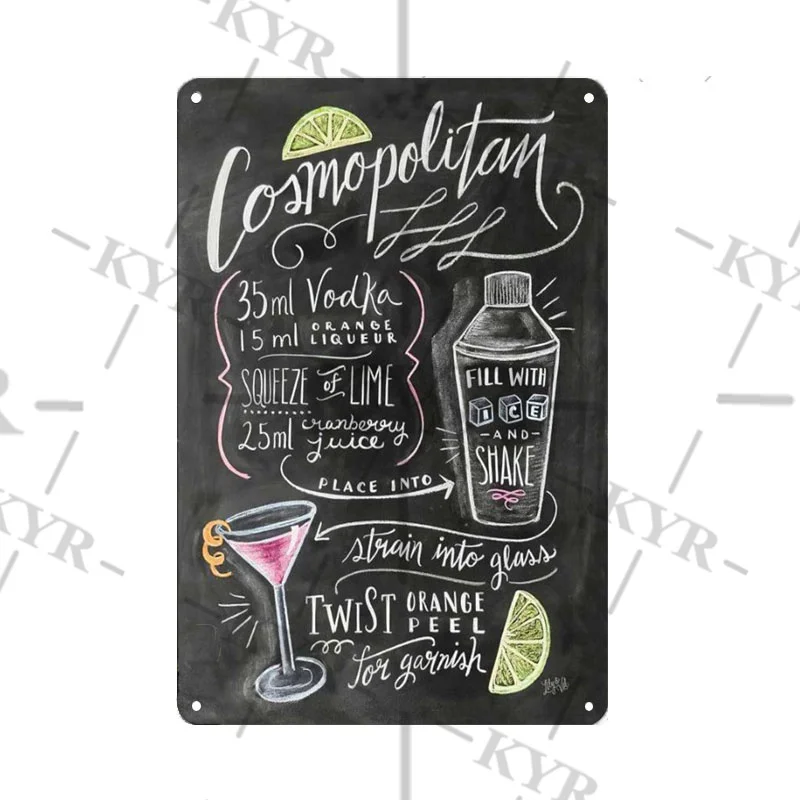 Cosmopolitan
35ml Vodka
15 ml ORANGE LIQUEUR
SQUEEZE of LIME
25ml cranberry juice
PLACE INTO
FILL WITH
ICE
-AND-
SHAKE
strain into glass
TWIST ORANGE PEEL
for garnish
-KYR-
-KYR-
-KYR-
-KYR-
-KYR-
-KYR